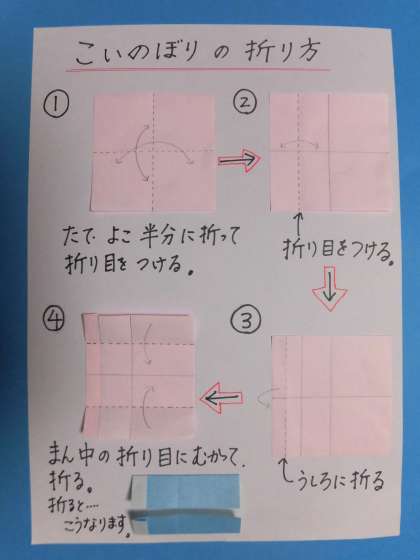 こいのぼりの折り方
①
②
たて、よこ半分に折って
折り目をつける。
折り目をつける。
③
うしろに折る
④
まん中の折り目にむかって、
折る。
折ると‥‥
こうなります。